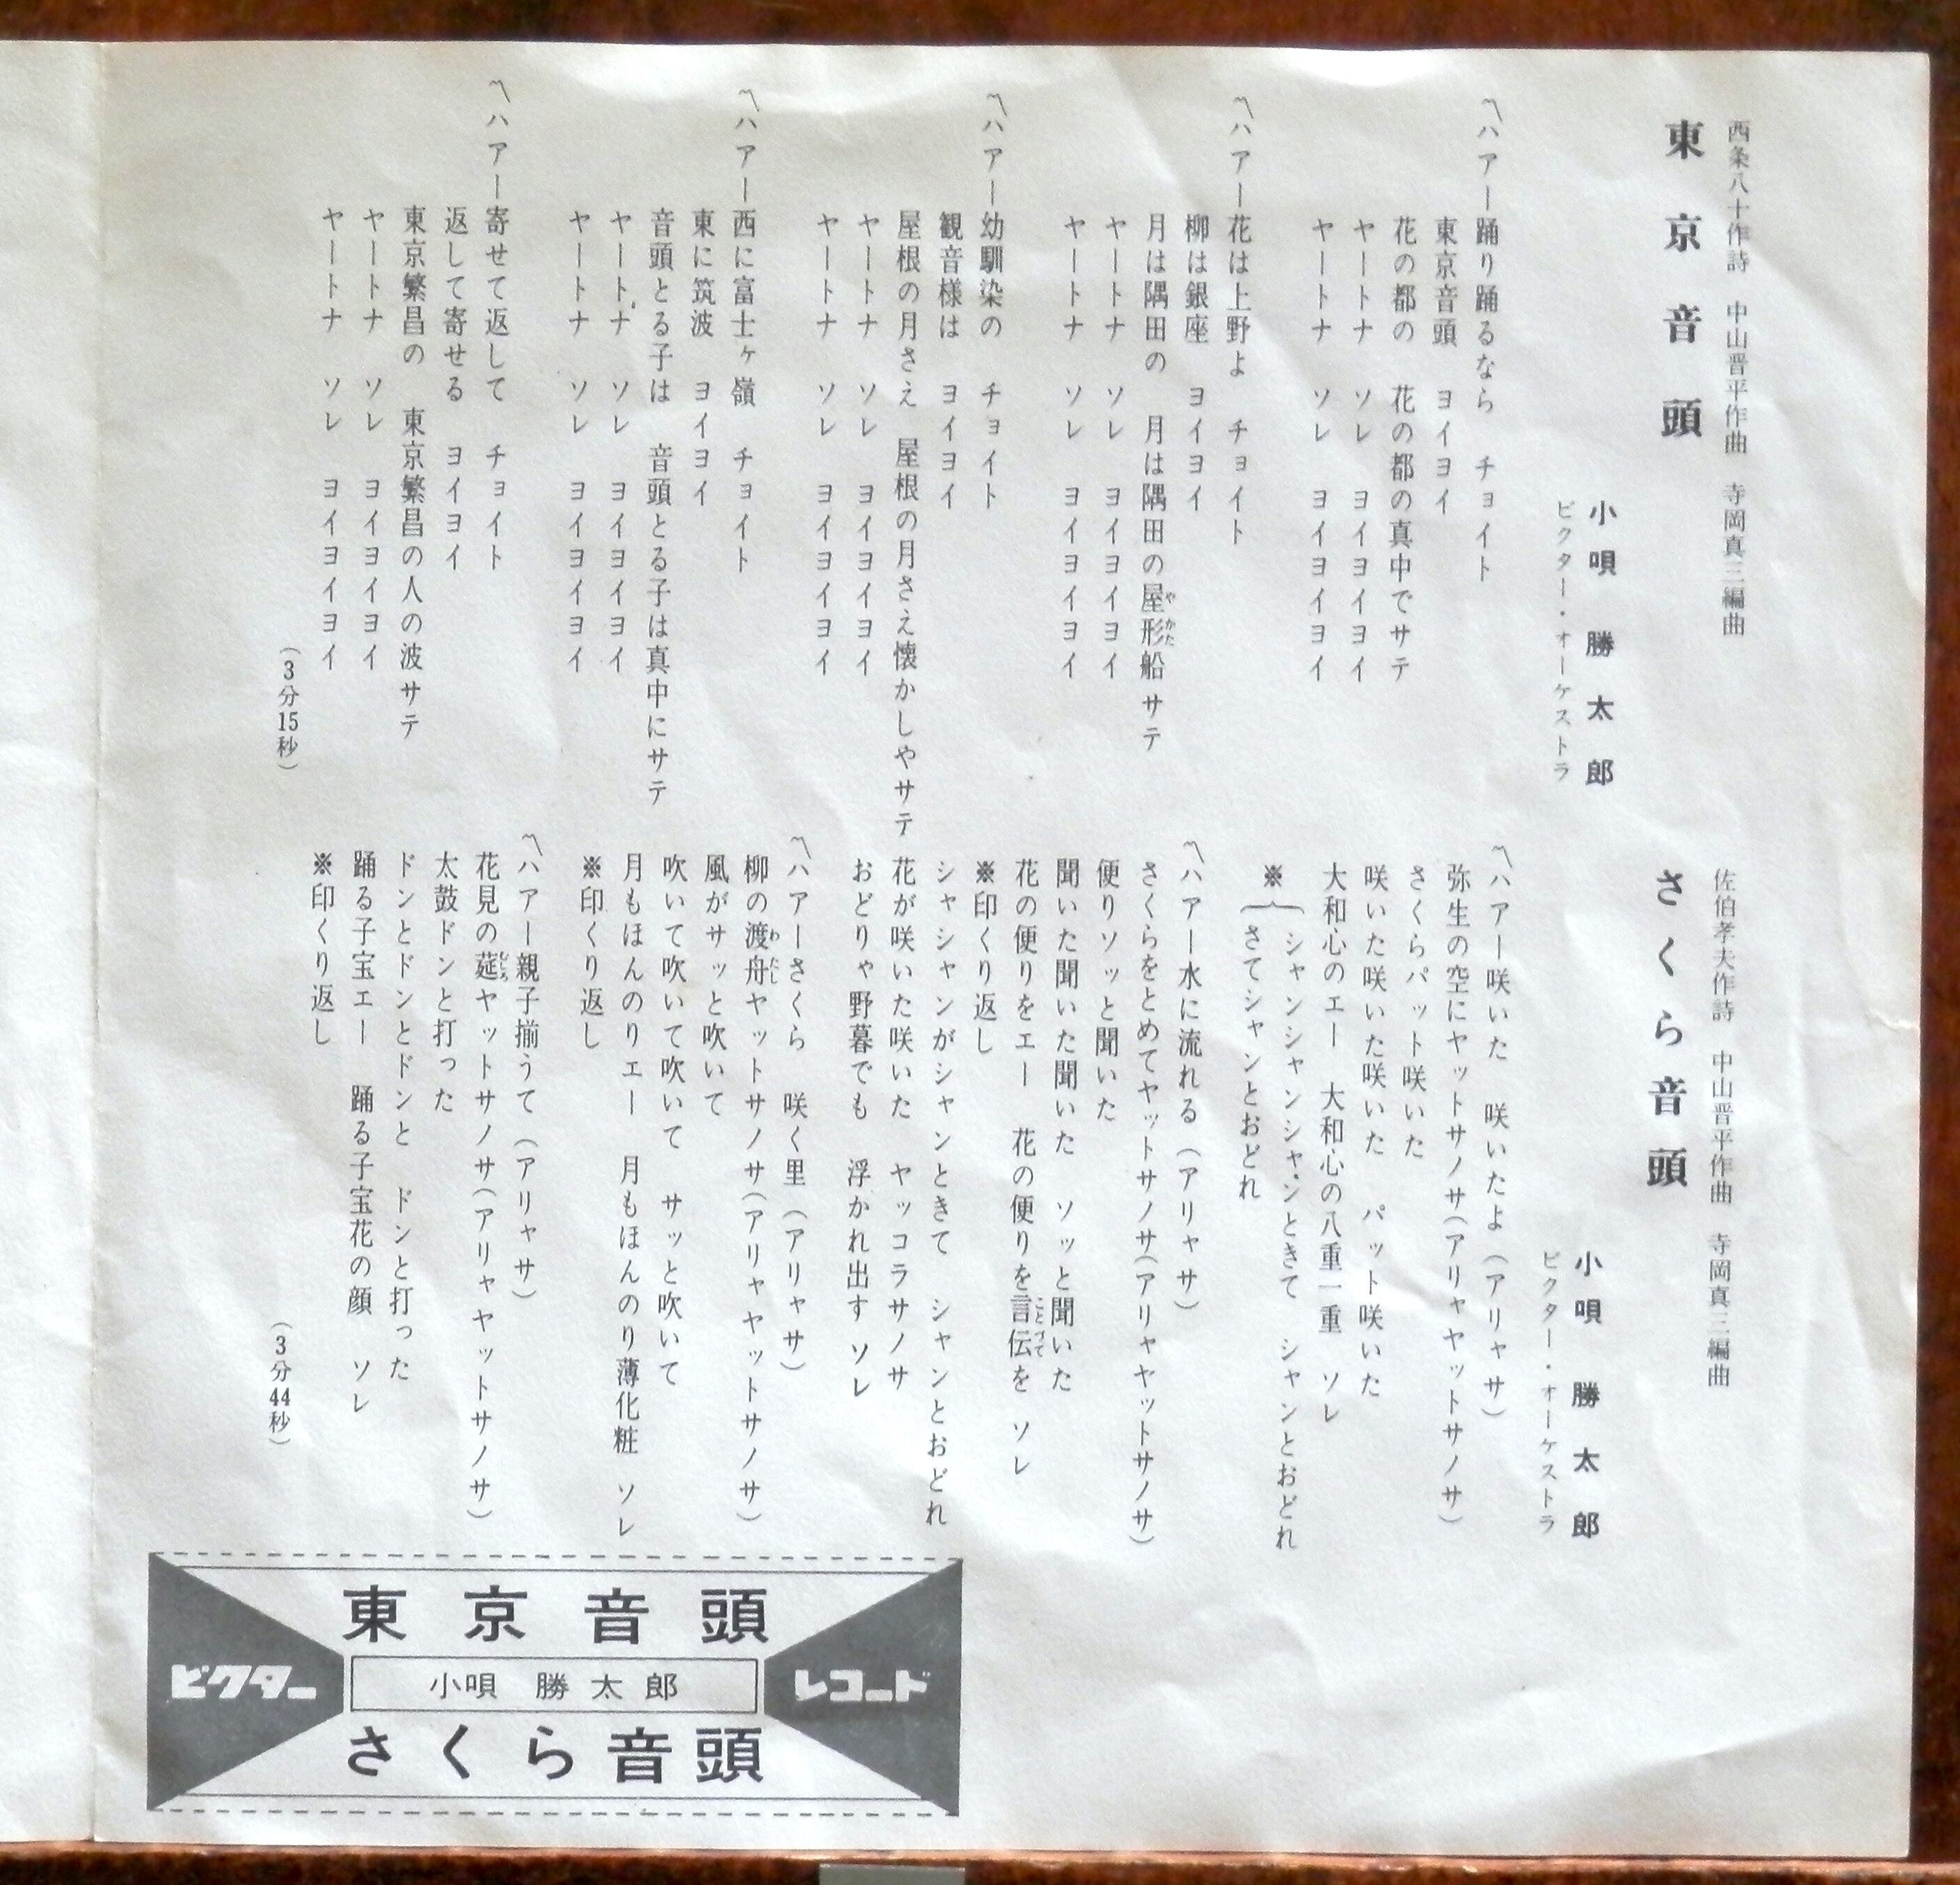 西条八十作詩　中山晋平作曲　寺岡真三編曲
東京音頭
小唄　勝太郎
ビクター・オーケストラ
〽ハアー踊り踊るなら　チョイト
東京音頭　ヨイヨイ
花の都の　花の都の真中でサテ
ヤートナ　ソレ　ヨイヨイヨイ
ヤートナ　ソレ　ヨイヨイヨイ
〽ハアー花は上野よ　チョイト
柳は銀座　ヨイヨイ
月は隅田の　月は隅田の屋形船サテ
ヤートナ　ソレ　ヨイヨイヨイ
ヤートナ　ソレ　ヨイヨイヨイ
〽ハアー幼馴染の　チョイト
観音様は　ヨイヨイ
屋根の月さえ　屋根の月さえ懐かしやサテ
ヤートナ　ソレ　ヨイヨイヨイ
ヤートナ　ソレ　ヨイヨイヨイ
〽ハアー西に富士ヶ嶺　チョイト
東に筑波　ヨイヨイ
音頭とる子は　音頭とる子は真中にサテ
ヤートナ　ソレ　ヨイヨイヨイ
ヤートナ　ソレ　ヨイヨイヨイ
〽ハアー寄せて返して　チョイト
返して寄せる　ヨイヨイ
東京繁昌の　東京繁昌の人の波サテ
ヤートナ　ソレ　ヨイヨイヨイ
ヤートナ　ソレ　ヨイヨイヨイ
（3分15秒）
佐伯孝夫作詩　中山晋平作曲　寺岡真三編曲
さくら音頭
小唄　勝太郎
ビクター・オーケストラ
〽ハアー咲いた　咲いたよ（アリャサ）
弥生の空にヤットサノサ（アリャヤットサノサ）
さくらパット咲いた
咲いた咲いた咲いた　パット咲いた
大和心のエー　大和心の八重一重　ソレ
※シャンシャンシャンときて　シャンとおどれ
さてシャンとおどれ
〽ハアー水に流れる（アリャサ）
さくらをとめてヤットサノサ（アリャヤットサノサ）
便りソッと聞いた
聞いた聞いた聞いた　ソッと聞いた
花の便りをエー　花の便りを言伝を　ソレ
※印くり返し
シャシャンがシャンときて　シャンとおどれ
花が咲いた咲いた　ヤッコラサノサ
おどりゃ野暮でも　浮かれ出す　ソレ
〽ハアーさくら　咲く里（アリャサ）
柳の渡舟ヤットサノサ（アリャヤットサノサ）
風がサッと吹いて
吹いて吹いて吹いて　サッと吹いて
月もほんのりエー　月もほんのり薄化粧　ソレ
※印くり返し
〽ハアー親子揃うて（アリャサ）
花見の莚ヤットサノサ（アリャヤットサノサ）
太鼓ドンと打った
ドンとドンとドンと　ドンと打った
踊る子宝エー　踊る子宝花の顔　ソレ
※印くり返し
（3分44秒）
東京音頭
ビクター
小唄　勝太郎
レコード
さくら音頭